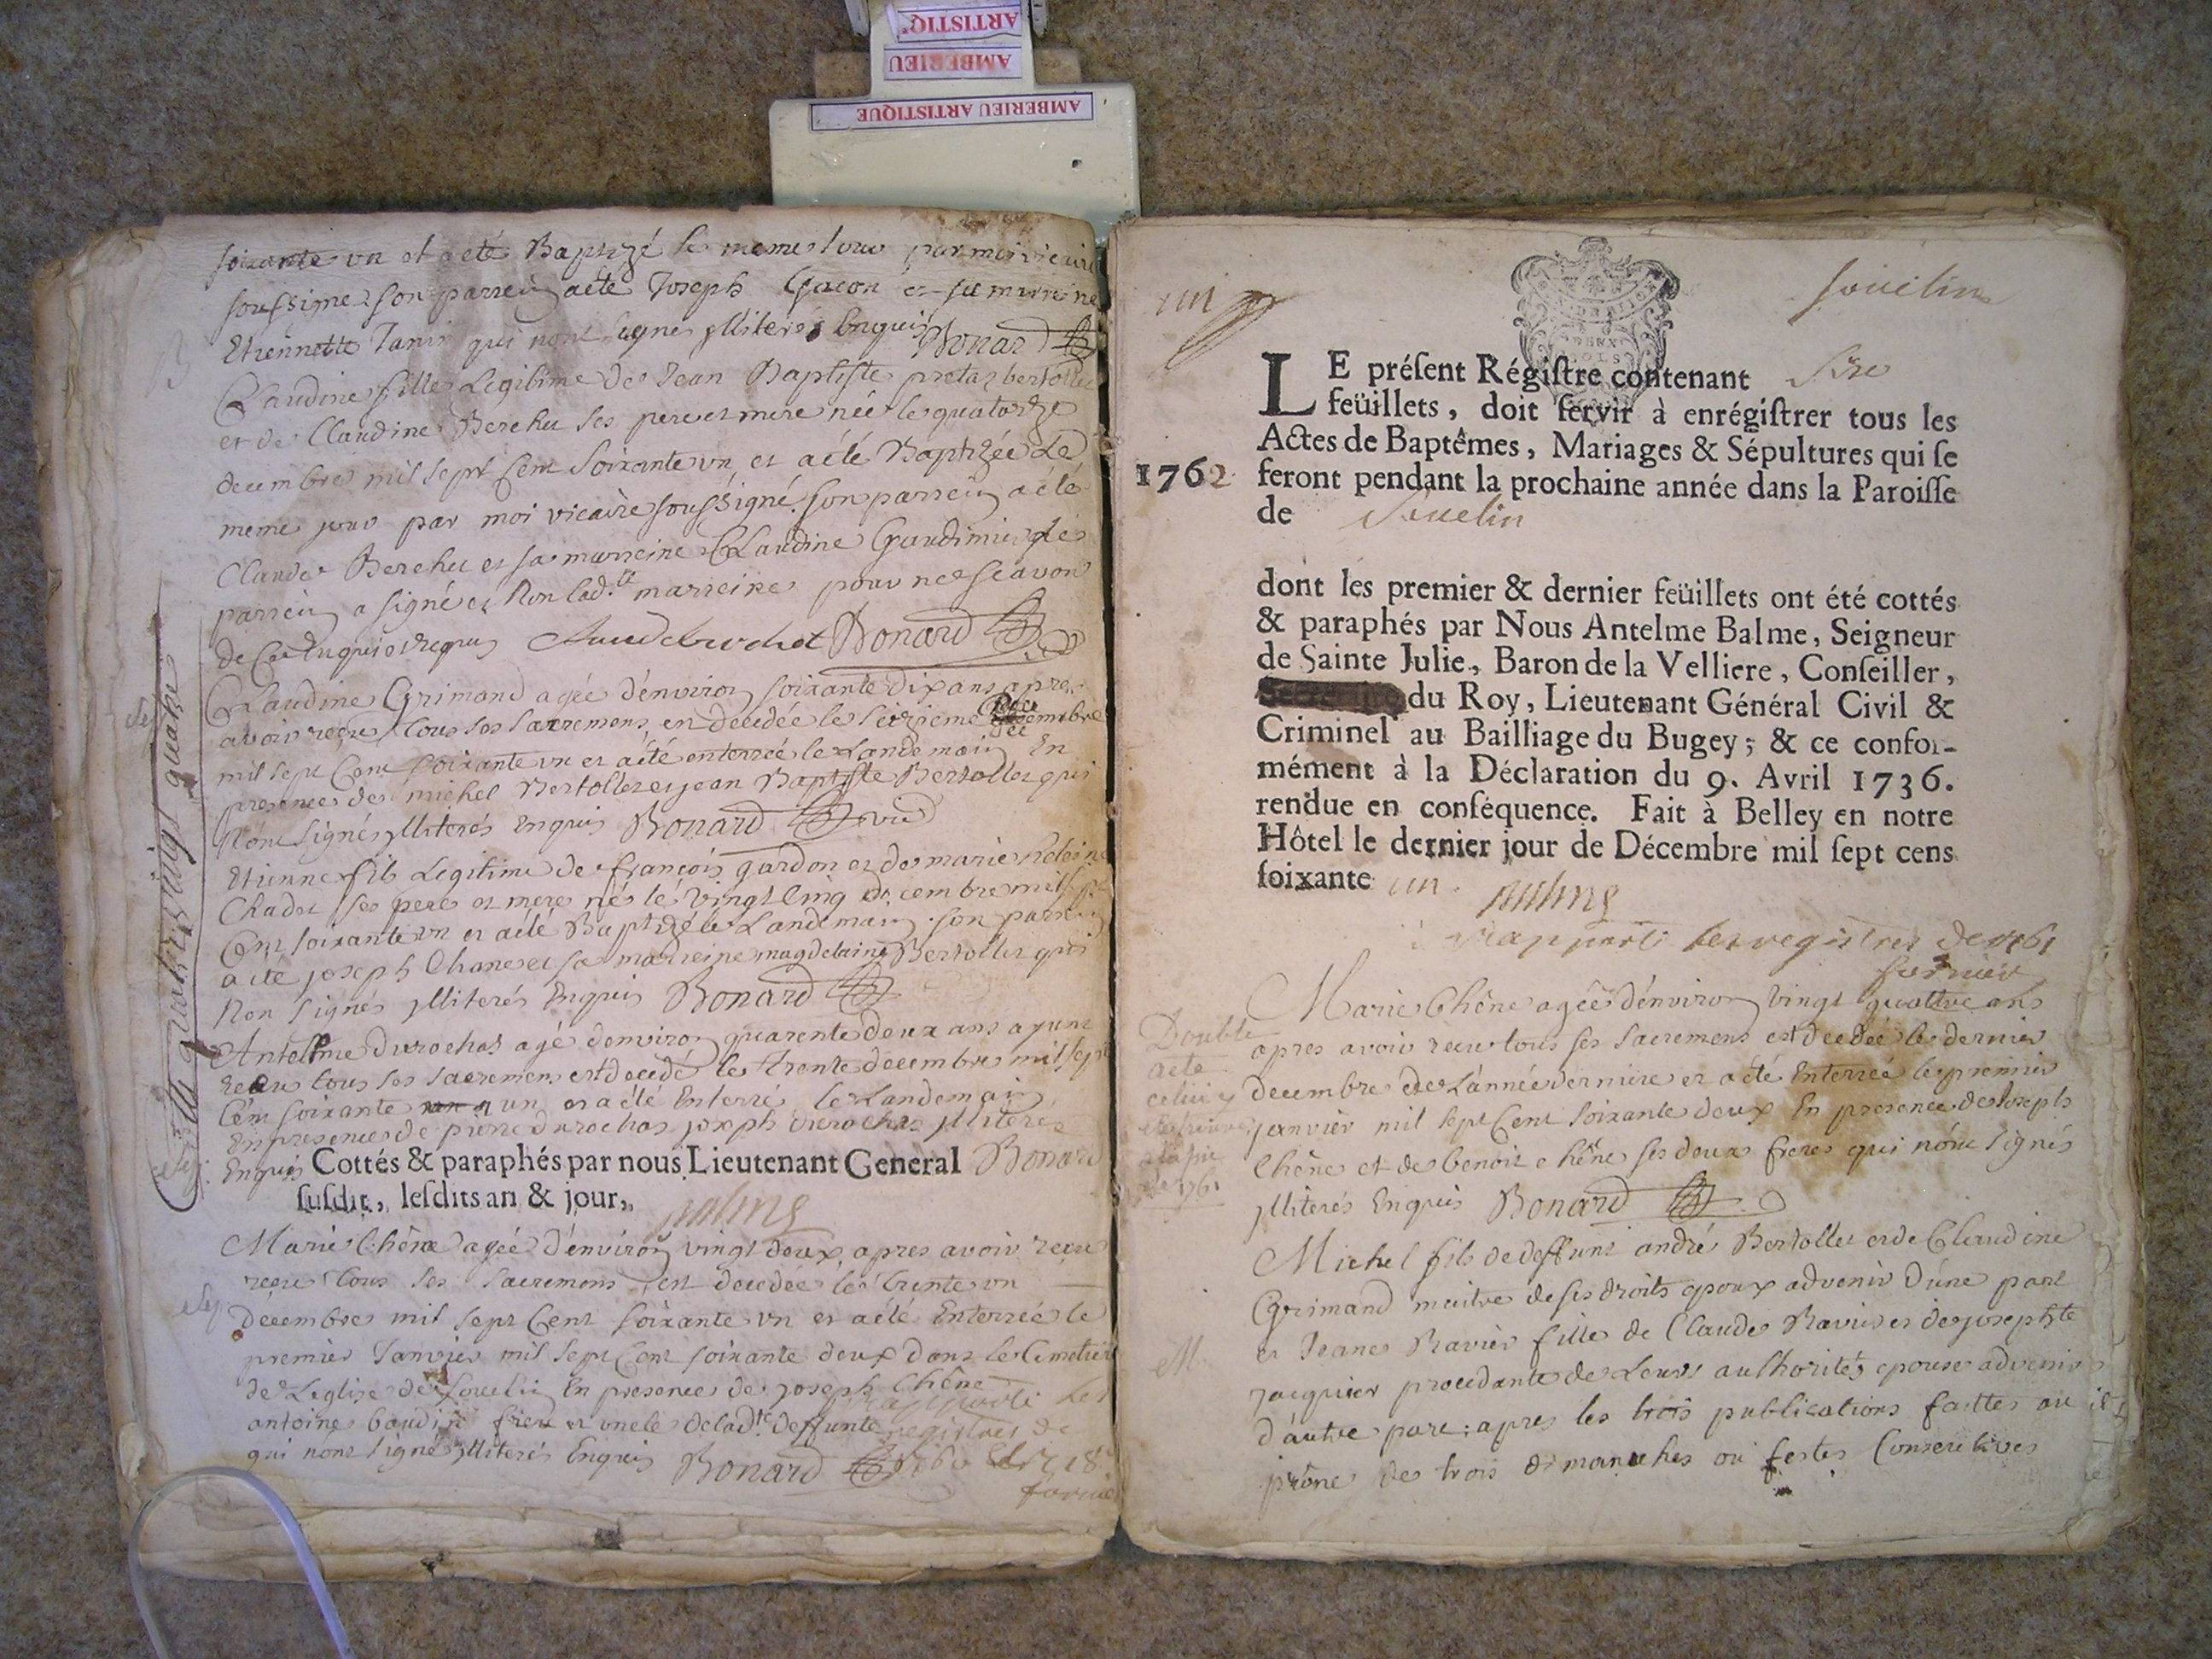 ARTISTIQ
AMBERIEU
AMBERIEU ARTISTIQUE
soixante un et a eté Baptizé le meme jour par moi vicaire
soussigné son parrein a eté Joseph Gacon et sa marreine
Etiennette Janin qui nont signés illiterés Enquis Bonard
Claudine fille Legitime de Jean Baptiste bertollet
et de Claudine Berchet ses pere et mere née le quatorze
decembre mil sept Cent soixante un et a eté Baptizée Le
meme jour par moi vicaire soussigné. son parrein a eté
Claude Berchet et sa marreine Claudine Led
parrein a signé et Non lad.te marreine pour ne scavoir
de Ce Enquis et requis Bonard
Claudine Grimand agée d'environ soixante dix ans apres
avoir reçu tous ses sacremens est decedée le seizieme decembre
mil sept Cent soixante un et a eté enterrée le Landemain En
presence de michel Bertollet et jean Baptiste Bertollet qui
N'ont signés illiterés Enquis Bonard
Etienne fils Legitime de françois gardon et de marie
Chadet ses pere et mere né le vingt Cinq decembre mil sept
Cent soixante un et a eté Baptizé le Landemain. son parrein
a eté joseph Chane et sa marreine magdelaine Bertollet qui
Non signés illiterés Enquis Bonard
Antelme durochat agé d'environ quarente deux ans ayant
recu tous ses sacremens est decedé le trente decembre mil sept
Cent soixante un et a eté Enterré le Landemain
En presence de pierre durochat joseph durochat illiterés
Enquis Cottés & paraphés par nous Lieutenant General Bonard
susdit, lesdits an & jour,
Balme
Marie Chêne agée d'environ vingt deux apres avoir recu
recu tous ses sacremens est decedée le trente un
décembre mil sept Cent soixante un et a eté Enterrée le
premier Janvier mil sept Cent soixante deux dans le Cimetiere
de L'eglise de Souclin En presence de joseph Chêne
antoine baudin frere et oncle de lad.te deffunte
qui n'ont signé illiterés Enquis Bonard
registres de
un
Souclin
LE présent Régistre contenant Seze
feüillets, doit servir à enrégistrer tous les
Actes de Baptêmes, Mariages & Sépultures qui se
1762 feront pendant la prochaine année dans la Paroisse
de Souclin
dont les premier & dernier feüillets ont été cottés
& paraphés par Nous Antelme Balme, Seigneur
de Sainte Julie, Baron de la Velliere, Conseiller,
du Roy, Lieutenant Général Civil &
Criminel au Bailliage du Bugey; & ce confor-
mément à la Déclaration du 9. Avril 1736.
rendue en conséquence. Fait à Belley en notre
Hôtel le dernier jour de Décembre mil sept cens
soixante un.
Balme
rapporté les registres de 1761
Marie Chêne agée d'environ vingt quattre ans
apres avoir recu tous ses sacremens est decedée le dernier
decembre de L'année derniere et a eté Enterrée le premier
janvier mil sept Cent soixante deux En presence de Joseph
Chêne et de benoit chêne ses deux freres qui n'ont signés
illiterés Enquis Bonard
Double
acte
celui cy
de 1761
Michel fils de deffunt andré Bertollet et de Claudine
Grimand maitre de ses droits epoux advenir d'une part
M
et Jeane Ravier fille de Claude Ravier et de josephte
Jacquier procedante de Leurs authorités epouse advenir
d'autre part; apres les trois publications faittes au
prône de trois dimanches ou festes Consecutives